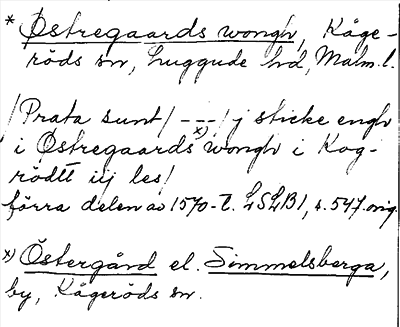 * Østregaards wongh, Kåge-
röds sn, Luggude hd, Malm. l.
/Prata sunt/ --- / j sticke engh
i Østregaards x) wongh i Kog-
rödtt iij les/
förra delen av 1570-t. LSLB 1, s. 547. orig.
x) Östergård el. Simmelsberga,
by, Kågeröds sn.